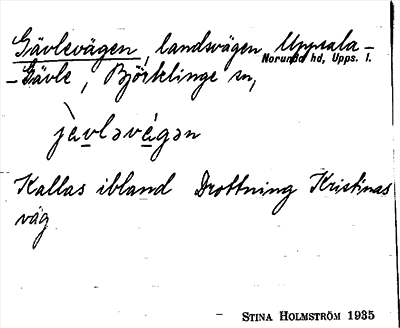 Gävlevägen, landsvägen Uppsala-
Norunda hd, Upps. l.
-Gävle, Björklinge sn,
jàvləvégən
Kallas ibland Drottning Kristinas
väg
STINA HOLMSTRÖM 1935